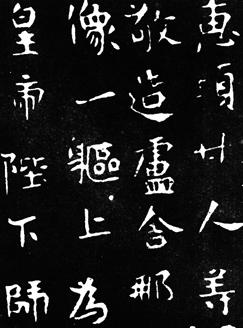 惠須廿人等
敬造盧舍那
像一軀上為
皇帝陛下師